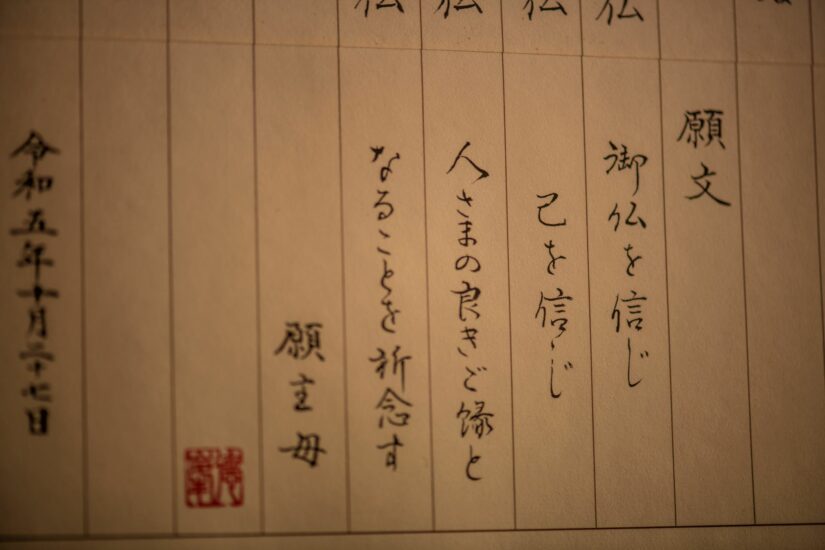 仏
仏
仏
仏
願文
御仏を信じ
己を信じ
人さまの良きご縁と
なることを祈念す
願主母
令和五年十月二十七日